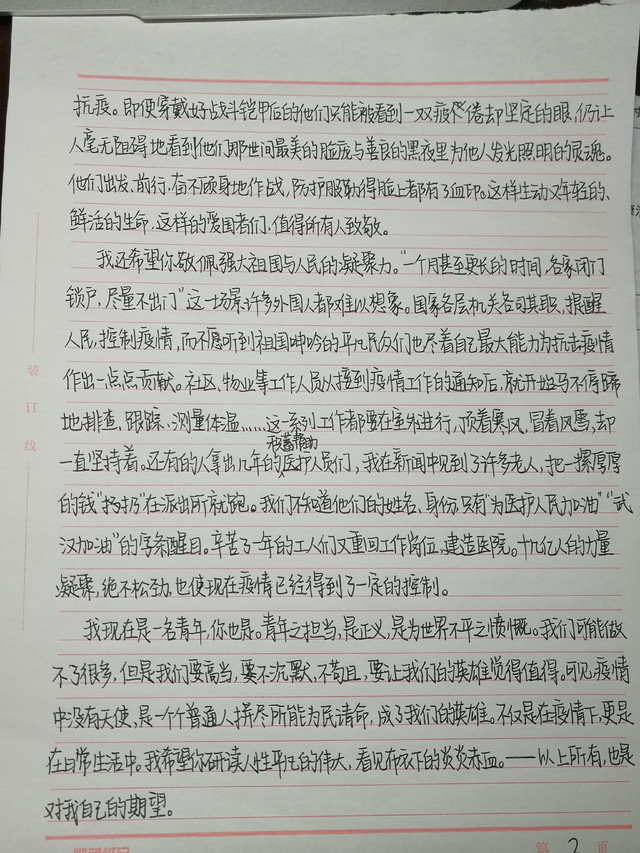 抗疫。即便穿戴好战斗铠甲后的他们只能被看到一双疲惫倦却坚定的眼,仍让
人毫无阻碍地看到他们那世间最美的脸庞与善良的黑夜里为他人发光照明的灵魂。
他们出发、前行、奋不顾身地作战,防护服勒得脸上都有了血印。这样生动又年轻的、
鲜活的生命、这样的爱国者们、值得所有人致敬。
我还希望你敬佩强大祖国与人民的凝聚力。"一个月甚至更长的时间,各家闭门
锁户,尽量不出门"这一场景许多外国人都难以想象。国家各层机关各司其职,提醒
人民,控制疫情,而不愿听到祖国呻吟的平凡民众们也尽着自己最大能力为抗击疫情
作出一点点贡献。社区、物业等工作人员从接到疫情工作的通知后,就开始马不停蹄
地排查、跟踪、测量体温……这一系列工作都要在室外进行,顶着寒风,冒着风雪,却
一直坚持着。还有的人拿出几年的积蓄帮助医护人员们,我在新闻中见到了许多老人,把一摞厚厚
的钱"扔"在派出所就跑。我们不知道他们的姓名、身份,只有"为医护人民加油""武
汉加油"的字条醒目。辛苦了一年的工人们又重回工作岗位,建造医院。十几亿人的力量
凝聚,绝不松劲,也使现在疫情已经得到了一定的控制。
我现在是一名青年,你也是。青年之担当,是正义,是为世界不平之愤慨。我们可能做
不了很多,但是我们要高当,要不沉默,不苟且,要让我们的英雄觉得值得。可见,疫情
中没有天使,是一个个普通人拼尽所能为民请命,成了我们的英雄。不仅是在疫情下,更是
在日常生活中。我希望你研读人性平凡的伟大,看见布衣下的炎炎赤血。——以上所有,也是
对我自己的期望。
装
订
线
第 2 页